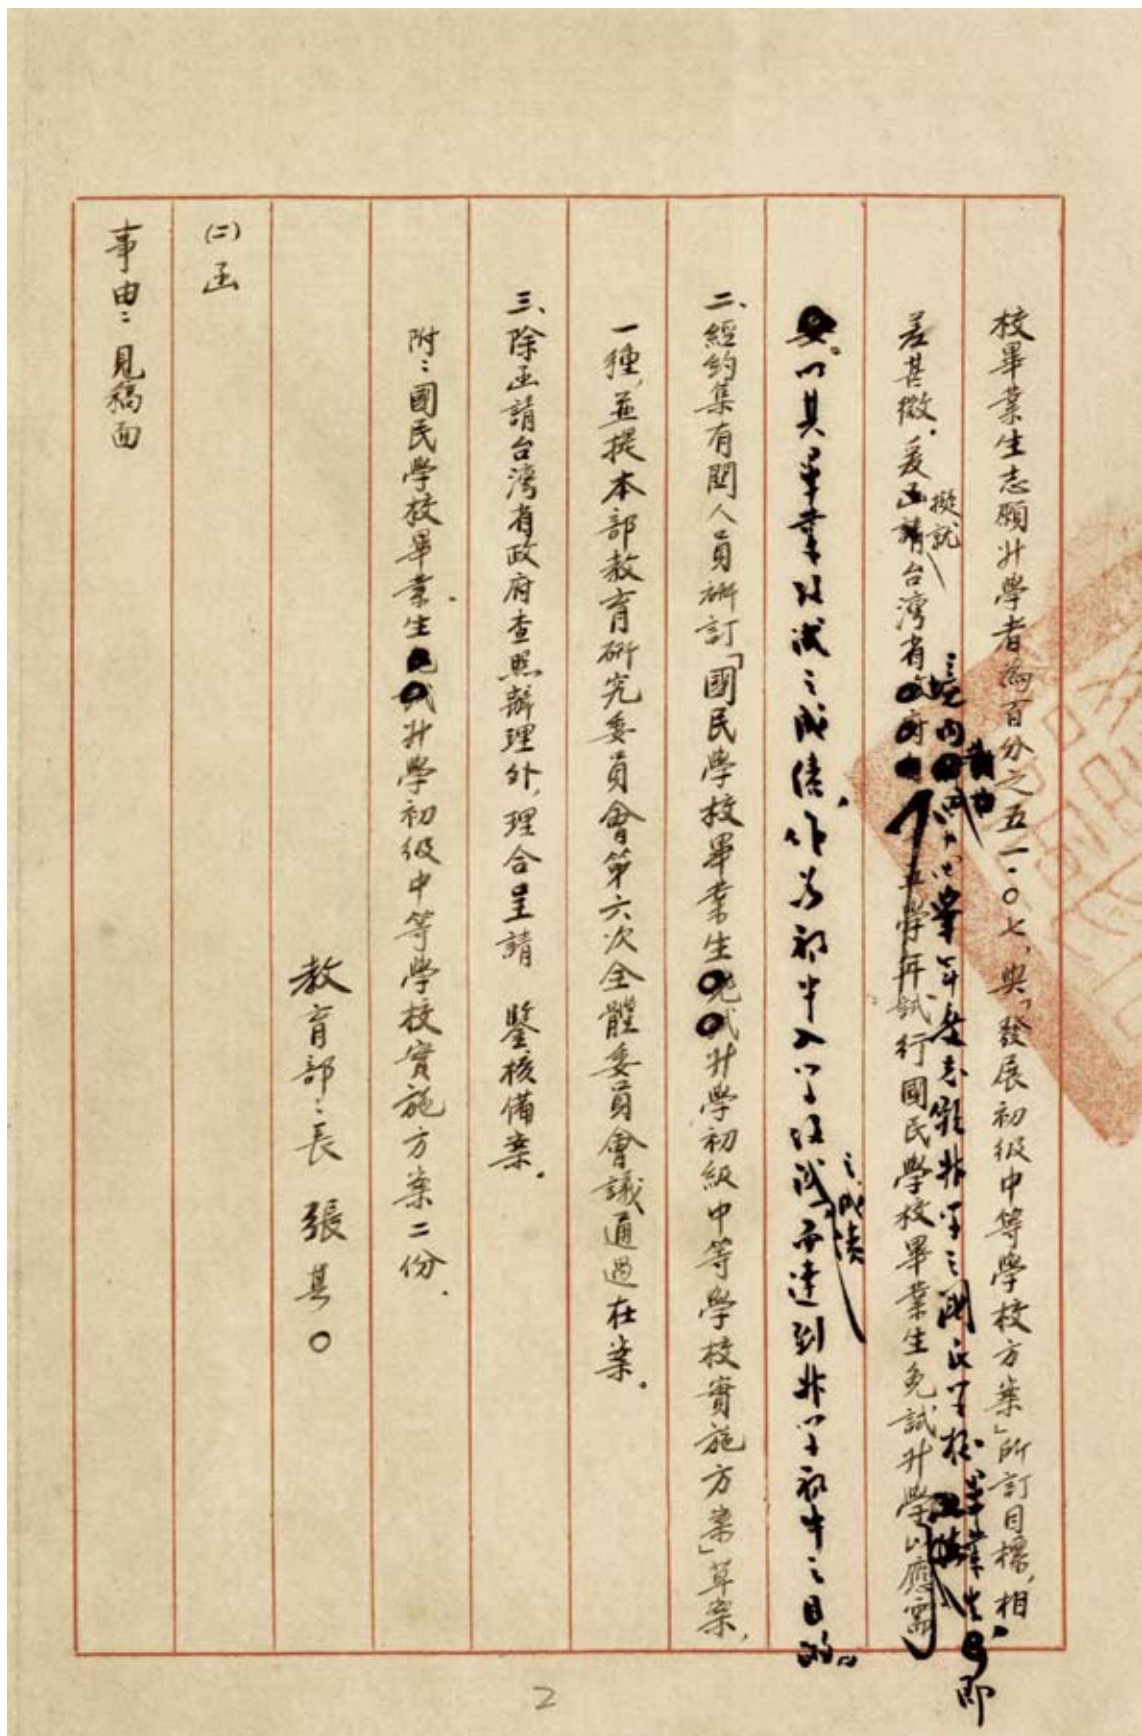 校畢業生志願升學者為百分之五一·〇七,與「發展初級中等學校方案」所訂目標,相
差甚微。爰函請台灣省政府自 學年試行國民學校畢業生免試升學以應需
擬就
境內 四十 學年度志願升學之國民學校畢業生,即
要。以其畢業考試之成績,作為初中入學考試而達到升學初中之目的。
之成績
二、經約集有關人員研訂「國民學校畢業生免試升學初級中等學校實施方案」草案,
一種,並提本部教育研究委員會第六次全體委員會議通過在案。
三、除函請台灣省政府查照辦理外,理合呈請 鑒核備案。
附:國民學校畢業生免試升學初級中等學校實施方案二份.
教育部:長 張其〇
(二)函
事由:見稿面
2